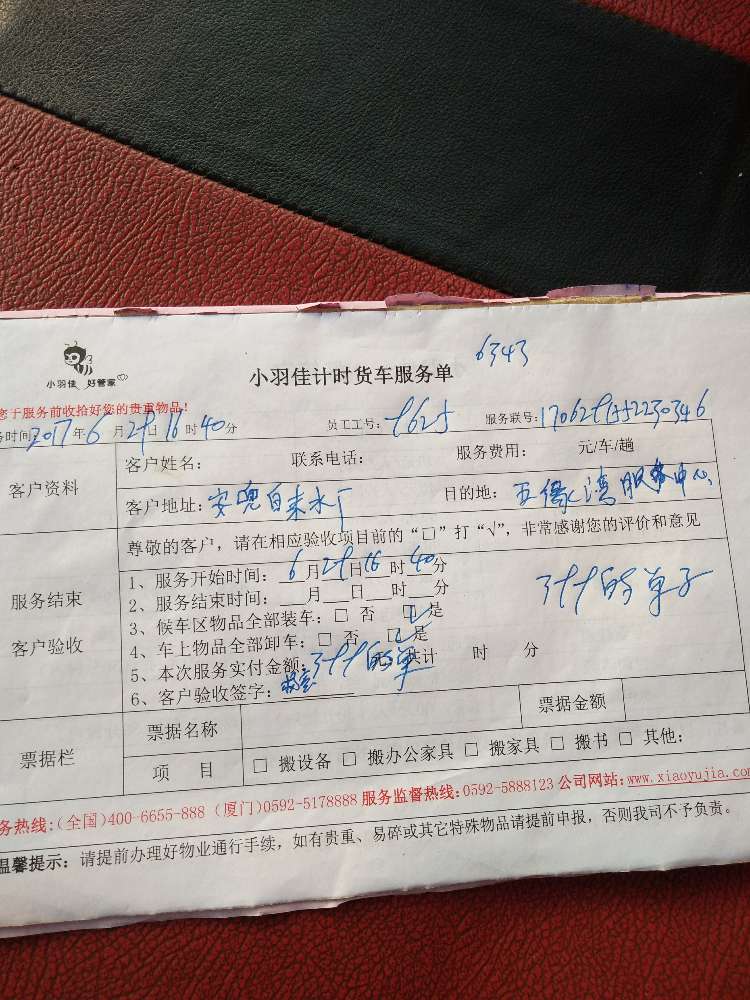 6343
小羽佳 好管家
小羽佳计时货车服务单
您于服务前收拾好您的贵重物品!
务时间2017年6月29日16时40分 员工工号: 9625 服务联号:
客户资料
客户姓名: 联系电话: 服务费用: 元/车/趟
客户地址: 安兜自来水厂 目的地: 五缘湾服务中心
服务结束
客户验收
尊敬的客户,请在相应验收项目前的“□”打“√”,非常感谢您的评价和意见
1、服务开始时间: 6月29日16时40分
2、服务结束时间:___月___日___时___分
3、候车区物品全部装车:□ 否 □ 是
4、车上物品全部卸车:□ 否 □ 是
的单子
5、本次服务实付金额: 的单 共计 时 分
6、客户验收签字:
票据栏
票据名称 票据金额
项 目 □ 搬设备 □ 搬办公家具 □ 搬家具 □ 搬书 □ 其他:
务热线:(全国)400-6655-888 (厦门)0592-5178888 服务监督热线:0592-5888123 公司网站:www.xiaoyujia.com
温馨提示: 请提前办理好物业通行手续,如有贵重、易碎或其它特殊物品请提前申报,否则我司不予负责。